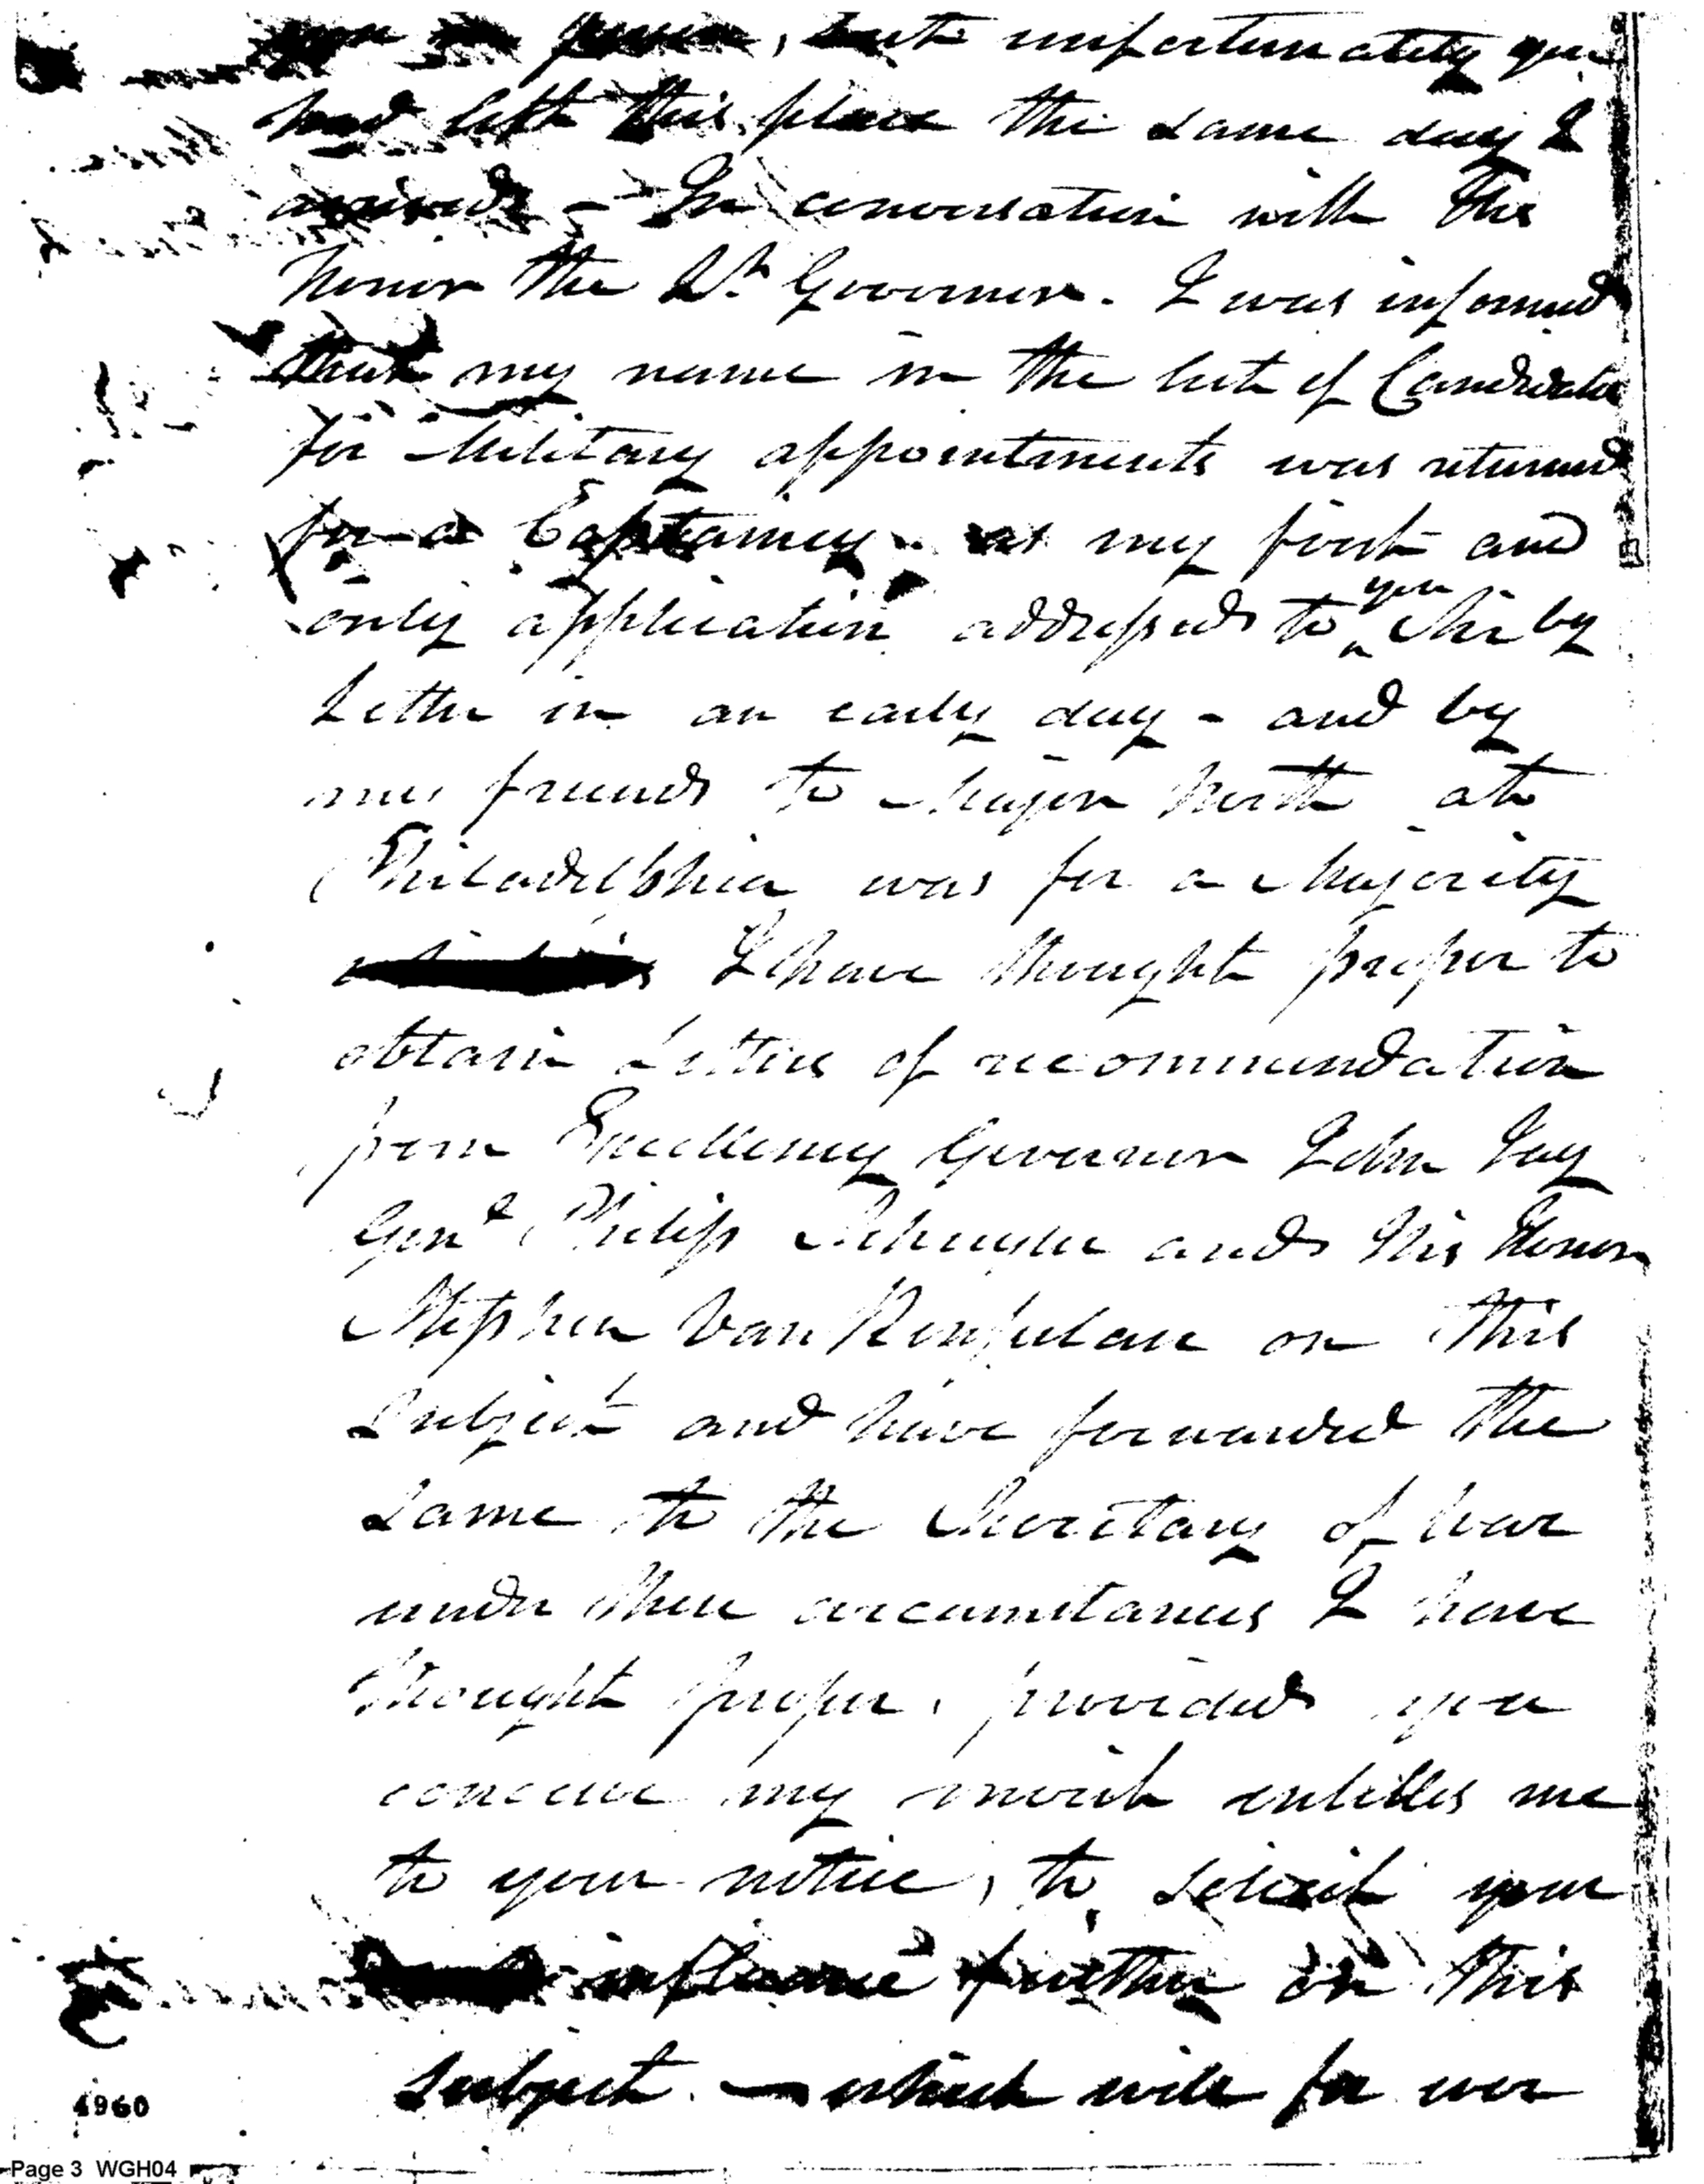 you in person, but unfortunately you
had left this place the same day I
arrived - In conversation with His
honor the Lt Governor. I was informed
that my name in the list of Candidates
for Military appointments was returned
for a Captaincy. as my first and
only application addressed to you Sir by
Letter in an early day - and by
my friends to Major North at
Philadelphia was for a Majority
I have thought proper to
obtain Letters of recommendation
from Excellency Governor John Jay
Genl Philip Schuyler and His Honor
Stephen Van Renselaer on this
Subject and have forwarded the
Same to the Secretary of War
under these circumstances I have
thought proper, provided you
conceive my merit entitles me
to your notice, to solicit your
influence further on this
Subject. - which will for ever
4960
Page 3 WGH04